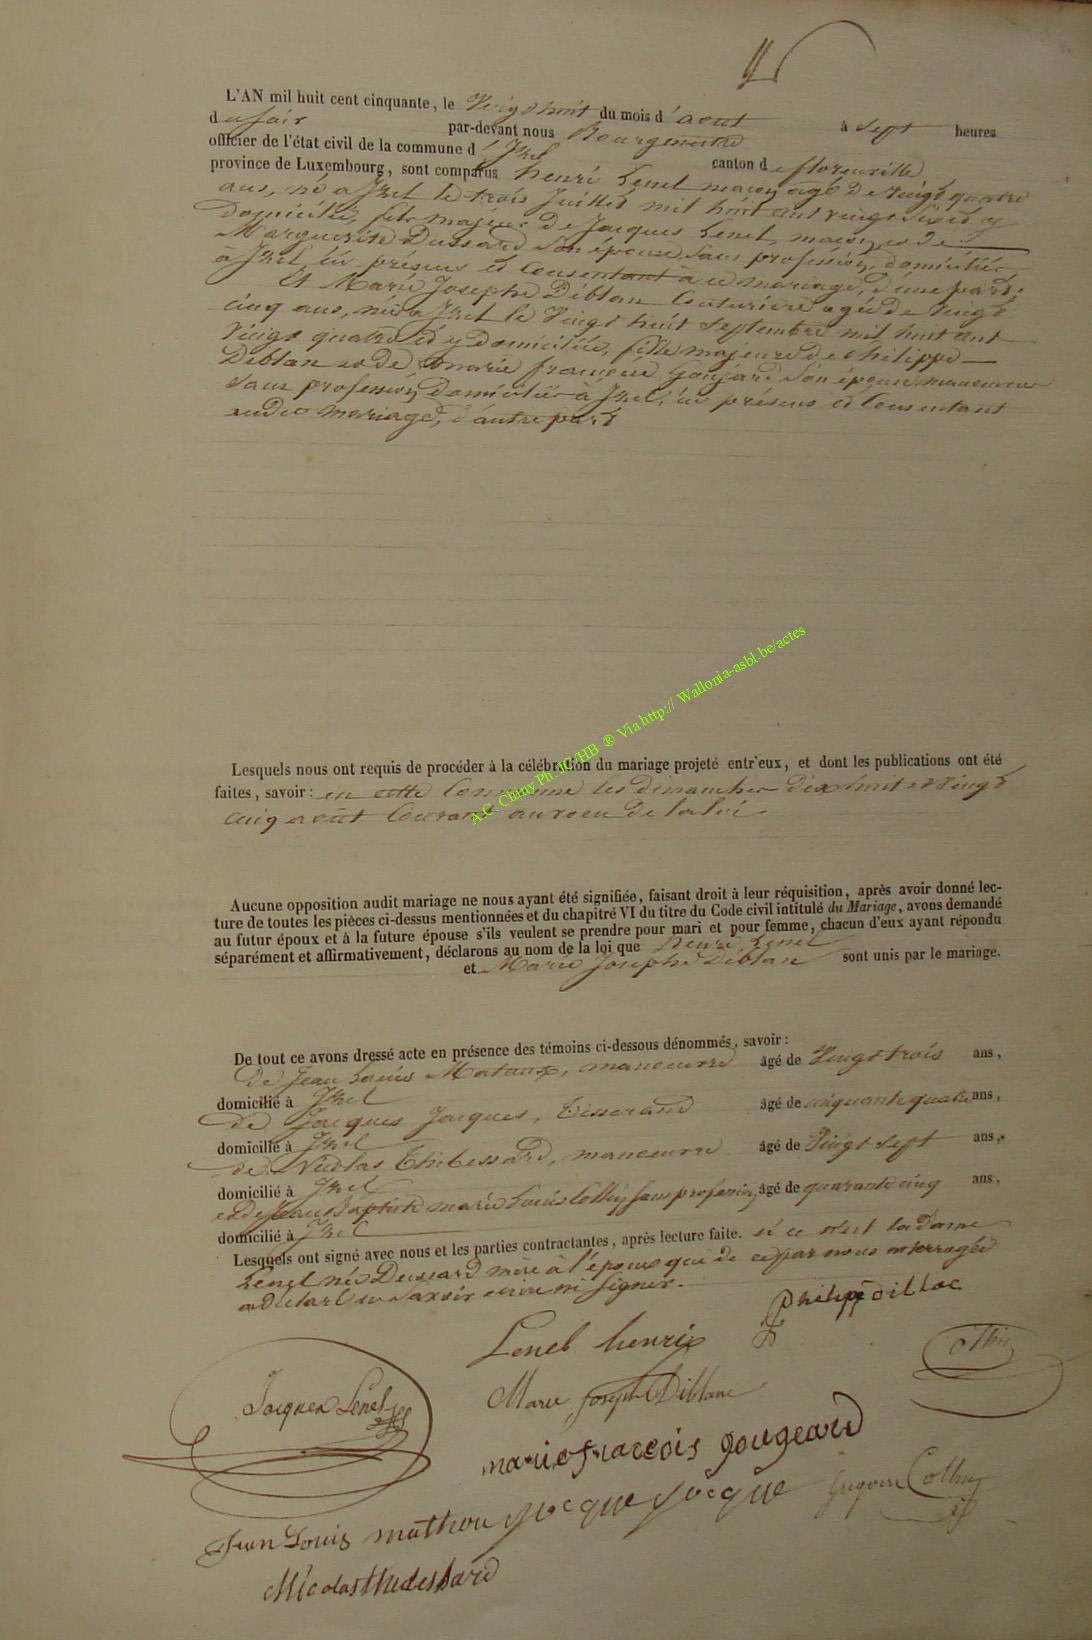 L'AN mil huit cent cinquante, le Vingt huit du mois d'aout à sept heures
du soir par-devant nous Bourgmestre
officier de l'état civil de la commune d'Izel canton de florenville
province de Luxembourg, sont comparus henri Lenel maçon agé de vingt quatre
ans, né a Izel le trois Juillet mil huit cent vingt six et y
domicilié, fils majeur de Jacques Lenel, maçon, et de
Marguerite Dussard son épouse, sans profession, domiciliés
à Izel, ici présens et consentant à ce mariage, d'une part;
Et Marie Josephe Deblan Couturière agée de vingt
cinq ans, née a Izel le Vingt huit septembre mil huit cent
vingt quatre et y domiciliée, fille majeure de Philippe
Deblan et de marie françoise Goujard son épouse, manoeuvre
sans profession, domiciliés à Izel, ici présens et consentant
audit mariage, d'autre part
Lesquels nous ont requis de procéder à la célébration du mariage projeté entr'eux, et dont les publications ont été
faites, savoir: en cette Commune les dimanches dix huit et vingt
cinq août courant au voeu de la loi.
A.C. Chiny Ph. JG/HB ® Via http:// Wallonia-asbl.be/actes
Aucune opposition audit mariage ne nous ayant été signifiée, faisant droit à leur réquisition, après avoir donné lec-
ture de toutes les pièces ci-dessus mentionnées et du chapitré VI du titre du Code civil intitulé du Mariage, avons demandé
au futur époux et à la future épouse s'ils veulent se prendre pour mari et pour femme, chacun d'eux ayant répondu
séparément et affirmativement, déclarons au nom de la loi que henri Lenel
et Marie Josephe Deblan sont unis par le mariage.
De tout ce avons dressé acte en présence des témoins ci-dessous dénommés, savoir:
de Jean Louis Mataux, manoeuvre âgé de Vingt trois ans,
domicilié à Izel
de Jacques Jacques, Tisserand âgé de cinquante quatre ans,
domicilié à Izel
de Nicolas Thibessard, manoeuvre âgé de Vingt sept ans,
domicilié à Izel
et de Jean Baptiste marie Louis Collin sans profession, âgé de quarante cinq ans,
domicilié à Izel
Lesquels ont signé avec nous et les parties contractantes, après lecture faite. si ce n'est la Dame
Lenel née Dussard mère à l'époux qui de ce par nous interrogée
a déclaré ne savoir écrire ni signer.
philipp dillac
Lenel henri
Collin
Jacques Lenel
Marie Joseph Diblanc
marie fracois gougeard
Jean Louis mathou jacque jacque Collin
Nicolas thibessard